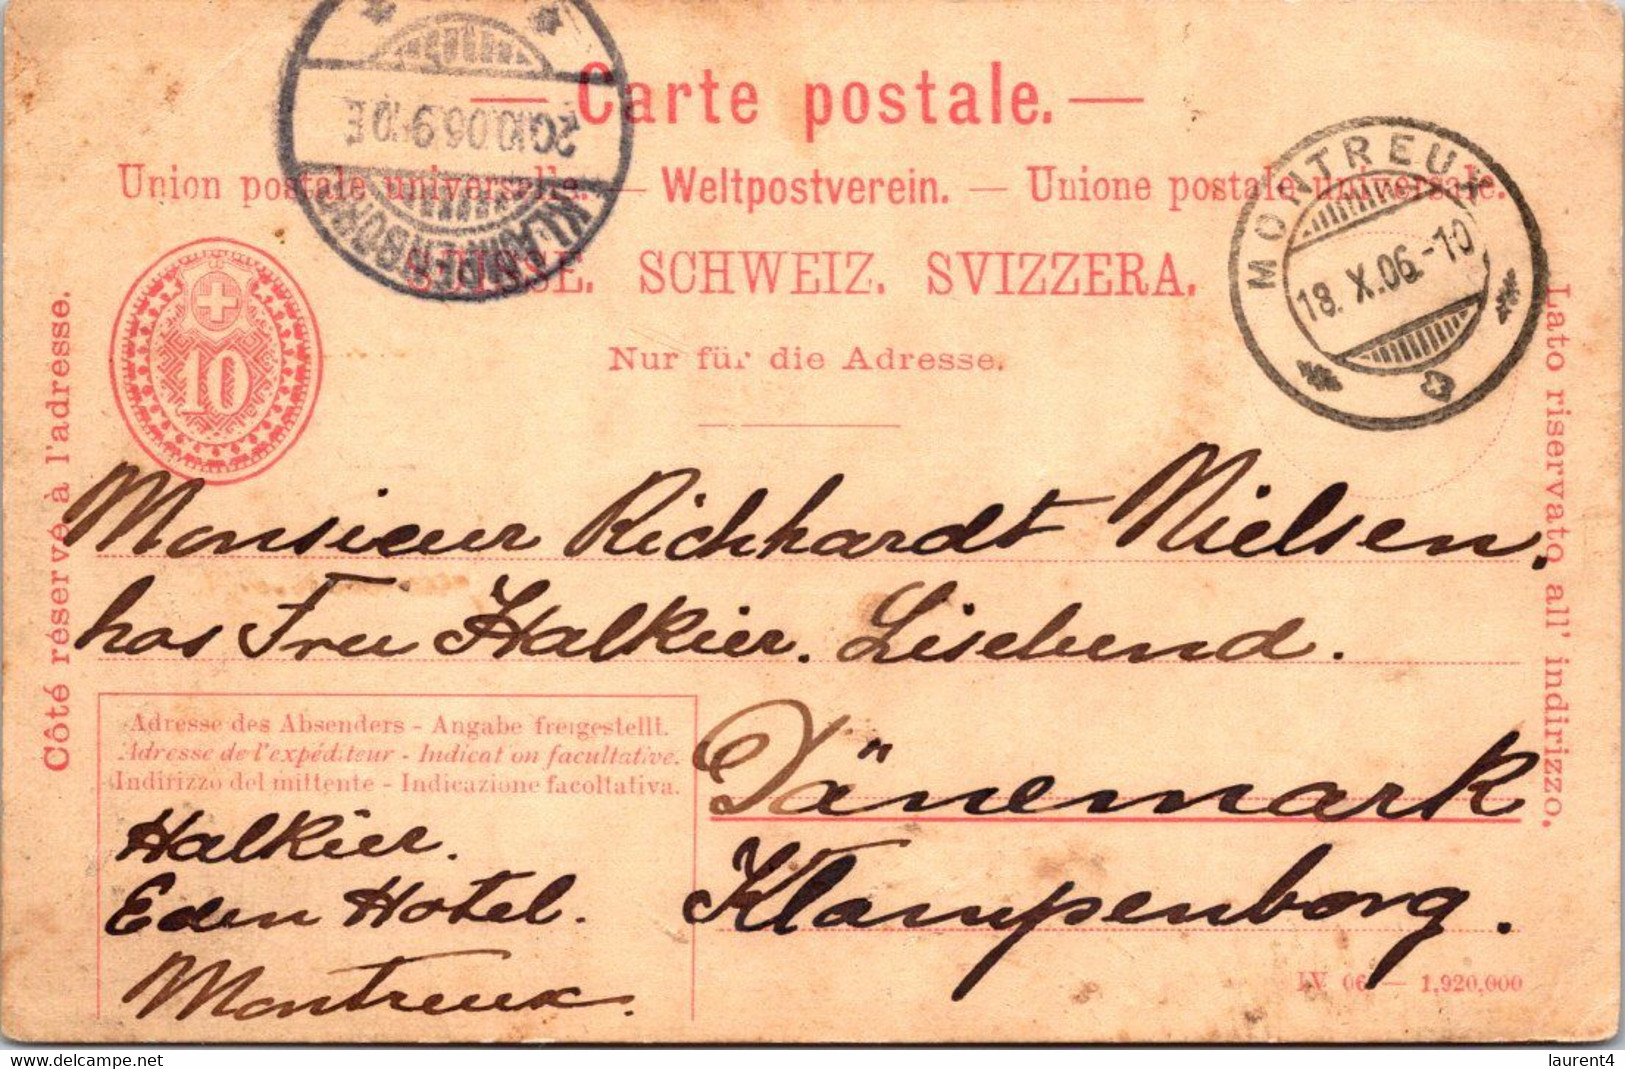 — Carte postale. —
Union postale universelle. — Weltpostverein. — Unione postale universale.
SUISSE. SCHWEIZ. SVIZZERA.
Nur für die Adresse.
KLAMPENBORG
20.10.06.9-10 E
MONTREUX
18.X.06.-10
10
Côté réservé à l'adresse.
Lato riservato all' indirizzo.
Monsieur Richhardt Nielsen.
hos Fru Halkier. Liselund.
Dänemark
Klampenborg.
Adresse des Absenders - Angabe freigestellt.
Adresse de l'expéditeur - Indication facultative.
Indirizzo del mittente - Indicazione facoltativa.
Halkier.
Eden Hotel.
Montreux.
IV 06 — 1,920,000
www.delcampe.net
laurent4